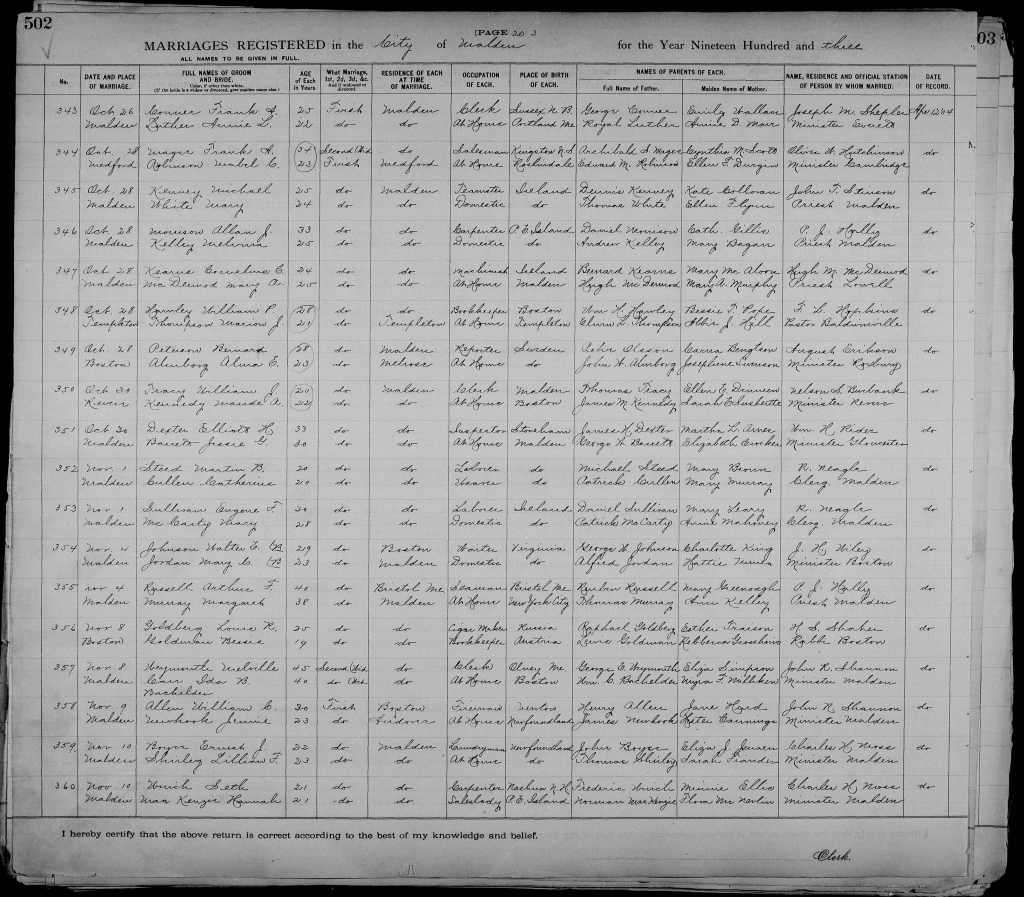 502
[PAGE 20
MARRIAGES REGISTERED in the City of Malden for the Year Nineteen Hundred and three
03
ALL NAMES TO BE GIVEN IN FULL.
No. DATE AND PLACE OF MARRIAGE. FULL NAMES OF GROOM AND BRIDE. AGE of Each in Years. What Marriage, 1st, 2d, 3d, &c. RESIDENCE OF EACH AT TIME OF MARRIAGE. OCCUPATION OF EACH. PLACE OF BIRTH OF EACH. NAMES OF PARENTS OF EACH. Full Name of Father. Maiden Name of Mother. NAME, RESIDENCE AND OFFICIAL STATION OF PERSON BY WHOM MARRIED. DATE OF RECORD.
343 Oct 26 Frank 25 First Malden Clerk Sussex N. B. George Emily Wallace Joseph M. Shepler
Malden Luther Annie L. 22 do do At Home Portland Me Royal Luther Annie D. Minister Everett
344 Oct. 28 Mager Frank A. 34 Second Wid do Salesman Kingston N. S. Archibald S. Mager Cynthia McScott Oliver W. Hutchinson do
Medford Robinson Mabel C. 23 First Medford At Home Roslindale Edward M. Robinson Ellen F. Durgin Minister Cambridge
345 Oct. 28 Kenney Michael 25 do Malden Teamster Ireland Dennis Kenney Kate John T. Stinson do
Malden White Mary 24 do do Domestic do Thomas White Ellen Flynn Priest Malden
346 Oct. 28 Morrison Allan J. 33 do do Carpenter P. E. Island Daniel Morrison Cath. Gillis P. J. Hally do
Malden Kelley Melvina 25 do do Domestic do Andrew Kelley Mary Dagan Priest Malden
347 Oct. 28 Kearns Cornelius C. 24 do do Machinist Ireland Bernard Kearns Mary Mc Aloon Hugh M. McDermod do
Malden McDermod Mary A. 25 do do At Home Malden Hugh McDermod Mary A. Murphy Priest Lowell
348 Oct. 28 Hawley William P. 28 do do Bookkeeper Boston Wm H. Hawley Bessie F. Pope F. L. Hopkins do
Templeton Thompson Marion J. 21 do Templeton At Home Templeton L. Thompson Abbie J. Hall Pastor Baldwinville
349 Oct. 28 Peterson Bernard 28 do Malden Reporter Sweden Olsson Carna Bengtson August Erikson do
Boston Almborg Alma E. 23 do Melrose At Home do John A. Almborg Josephine Swenson Minister Roxbury
350 Oct 30 Tracy William J. 20 do Malden Clerk Malden Thomas Tracy Ellen Nelson S. Burbank do
Revere Kennedy Maude A. 22 do do At Home Boston James M. Kennedy Sarah Minister Revere
351 Oct 30 Dexter Elliott H. 33 do do Inspector Stoneham James H. Dexter Martha L. Wm H. Rider do
Malden Barrett Jessie G 30 do do At Home Malden George W. Barrett Elizabeth Crocker Minister Gloucester
352 Nov. 1 Steed Martin B. 20 do do Laborer do Michael Steed Mary Brown R. Neagle do
Malden Cullen Catherine 20 do do Weaver do Patrick Cullen Mary Murray Clerg. Malden
353 Nov 1 Sullivan Eugene F. 30 do do Laborer Ireland Daniel Sullivan Mary Leary R. Neagle do
Malden McCarty Mary 28 do do Domestic do Patrick McCarty Annie Mahoney Clerg. Malden
354 Nov. 4 Johnson Walter E. (B 29 do Boston Waiter Virginia George W. Johnson Charlotte King J. H. Wiley do
Malden Jordan Mary C. (B 23 do Malden Domestic do Alfred Jordan Hattie Minister Boston
355 Nov 4 Russell Arthur F. 40 do Bristol Me Seaman Bristol Me. Russell Mary Greenough P. J. Hally do
Malden Murray Margaret 38 do Malden At Home New York City Thomas Murray Ann Kelley Priest Malden
356 Nov 8 Goldberg Louis R. 25 do do Cigar Maker Russia Raphael Goldberg Esther H. S. Shoher do
Boston Goldman Bessie 19 do do Bookkeeper Austria Goldman Rebbecca Rabbi Boston
357 Nov. 8 Weymouth Melville 45 Second Wid do Clerk Olney Me George E. Weymouth Eliza Simpson John R. Shannon do
Malden Carr Ida B. 40 do Wid do At Home Boston Wm. C. Bachelder Myra F. Milliken Minister Malden
Bachelder
358 Nov 9 Allen William C. 30 First Boston Fireman Henry Allen Jane Hard John R. Shannon do
Malden Newhook Jennie 23 do Andover At Home Newfoundland James Newhook Minister Malden
359 Nov 10 Boyce Ernest J. 22 do Malden Laundryman Newfoundland John Boyce Eliza J. Charles H. Moss do
Malden Shirley Lillian F. 23 do do At Home do Thomas Shirley Sarah Minister Malden
360 Nov. 10 Seth 21 do do Carpenter Nashua N. H. Frederic Minnie Ellis Charles H. Moss do
Malden MacKenzie Hannah 21 do do Saleslady P. E. Island Norman MacKenzie Flora Minister Malden
I hereby certify that the above return is correct according to the best of my knowledge and belief.
Clerk.